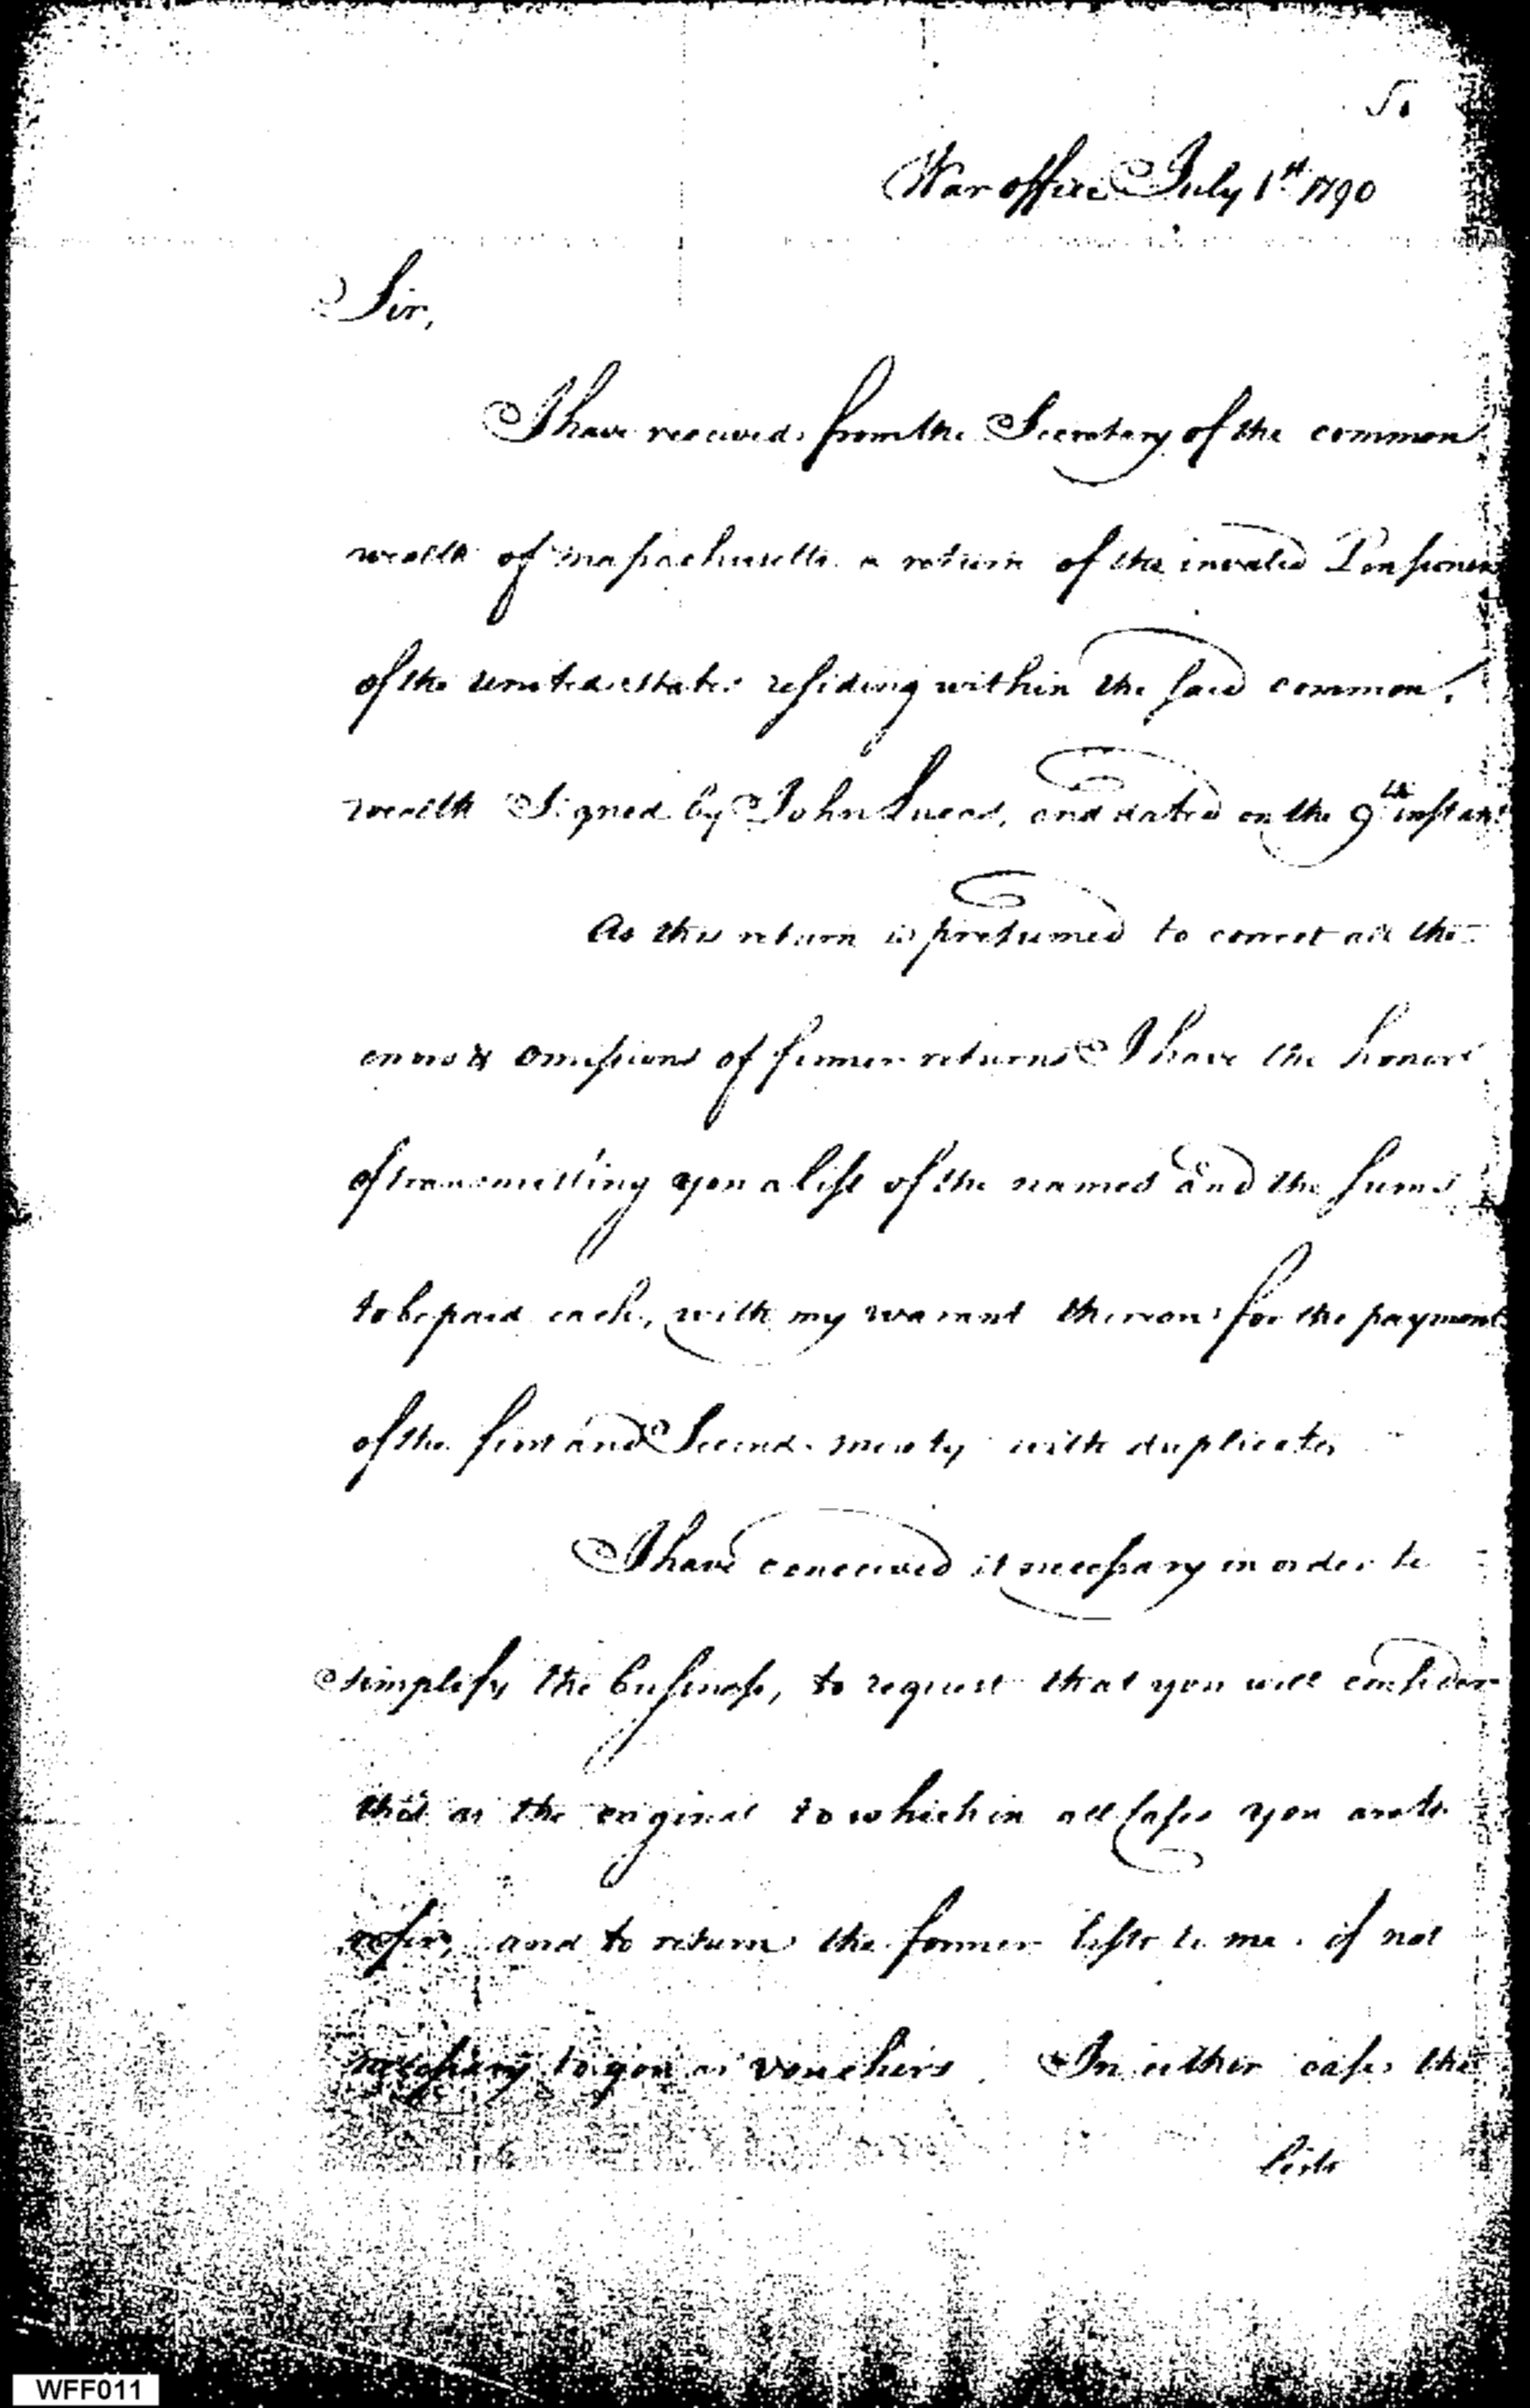 War office July 1st 1790
Sir,
I have received from the Secretary of the common
wealth of massachusetts a return of the invalid Pensioners
of the United States residing within the said common,
wealth Signed by John Lucas, and dated on the 9th instant
As this return is presumed to correct all the
errors & omissions of former returns I have the honor
of transmitting you a list of the names and the sums
to be paid each, with my warrant thereon for the payment
of the first and Second moiety with duplicates
I have conceived it necessary in order to
simplify the business, to request that you will consider
this as the original to which in all cases you are to
refer, and to return the former lists to me if not
necessary to you as vouchers In either case, the
lists
WFF011